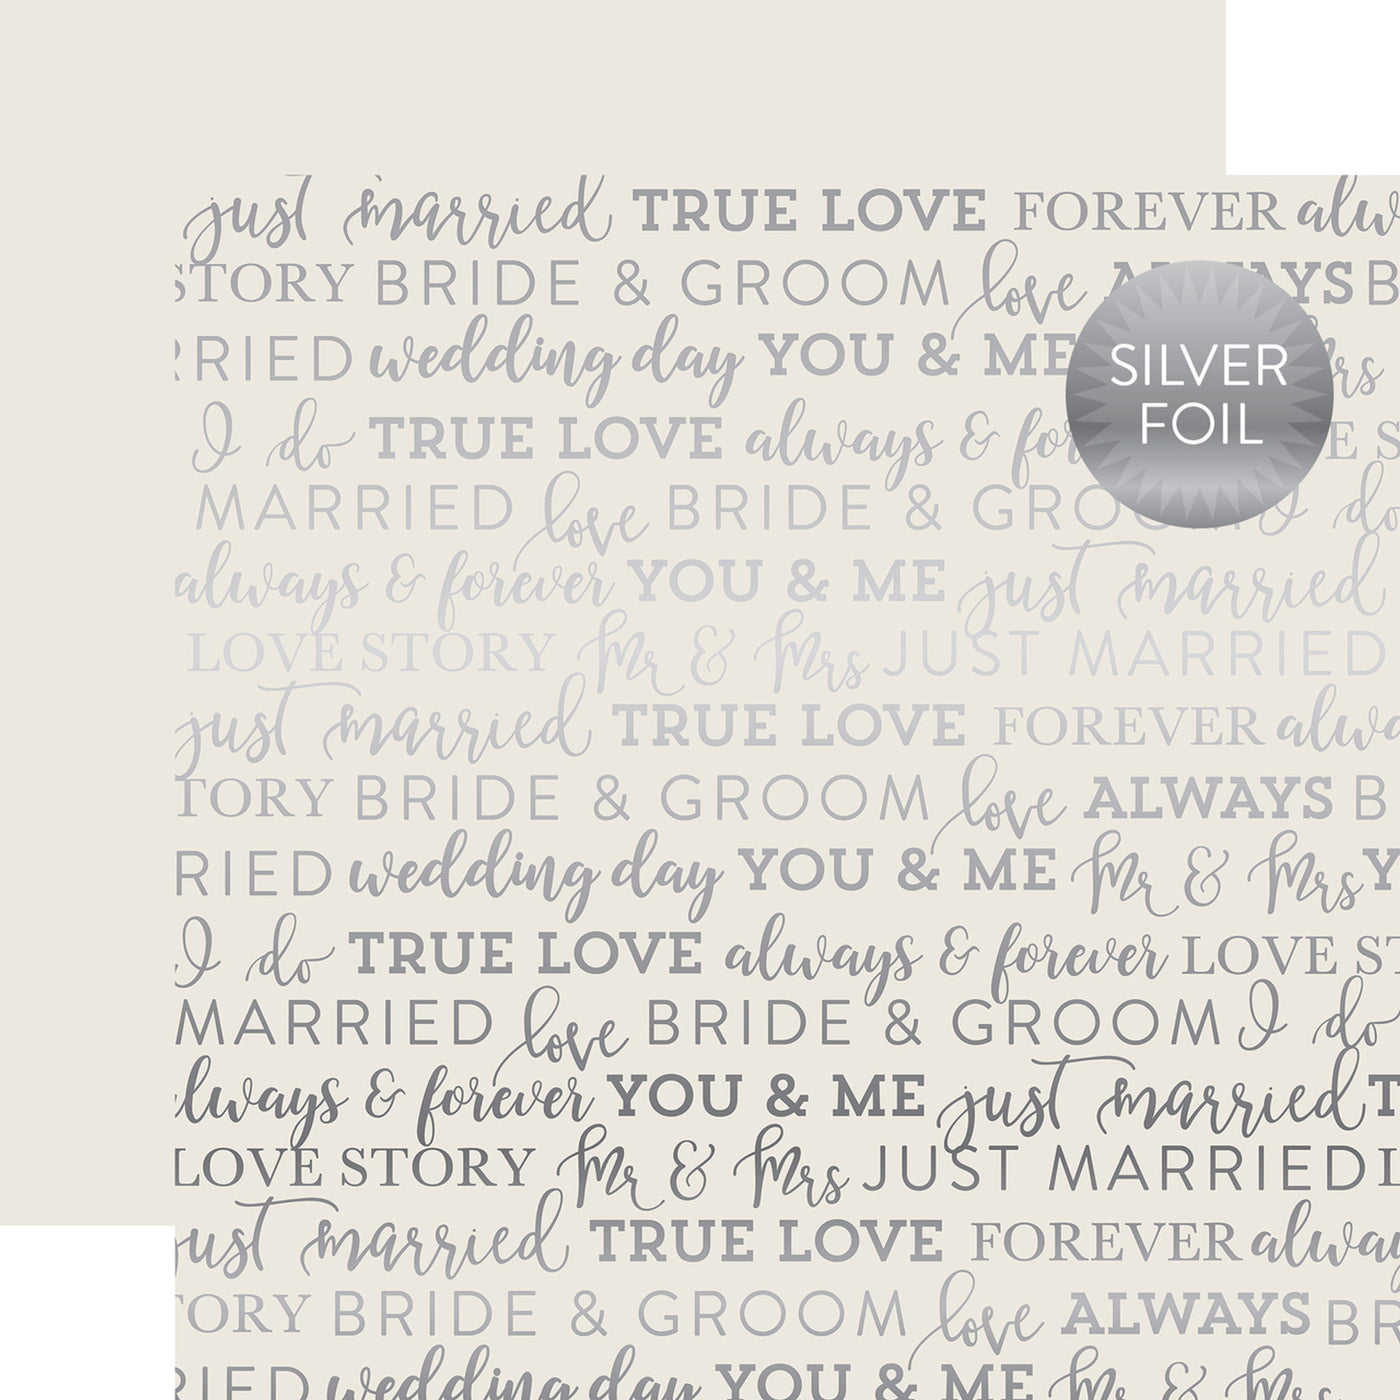 just married TRUE LOVE FOREVER alw
STORY BRIDE & GROOM love ALWAYS B
RRIED wedding day YOU & ME Mrs
SILVER
FOIL
I do TRUE LOVE always & for E S
MARRIED love BRIDE & GROOM I do
always & forever YOU & ME just married
LOVE STORY Mr & Mrs JUST MARRIED
just married TRUE LOVE FOREVER alwa
TORY BRIDE & GROOM love ALWAYS B
RIED wedding day YOU & ME Mr & Mrs Y
I do TRUE LOVE always & forever LOVE ST
MARRIED love BRIDE & GROOM I do
always & forever YOU & ME just married T
LOVE STORY Mr & Mrs JUST MARRIED L
just married TRUE LOVE FOREVER alway
TORY BRIDE & GROOM love ALWAYS BR
RIED wedding day YOU & ME Mr & Mrs